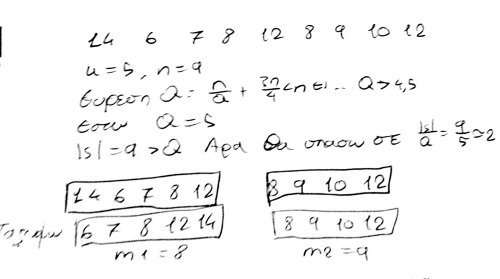 14 6 7 8 12 8 9 10 12
k = 5, n = 9
Ευρεση Q = n/Q + 3n/4 < n ... Q > 4,5
Εστω Q = 5
|S| = 9 > Q Αρα θα σπασω σε |S|/Q = 9/5 ≃ 2
14 6 7 8 12 8 9 10 12
6 7 8 12 14 8 9 10 12
m1 = 8 m2 = 9